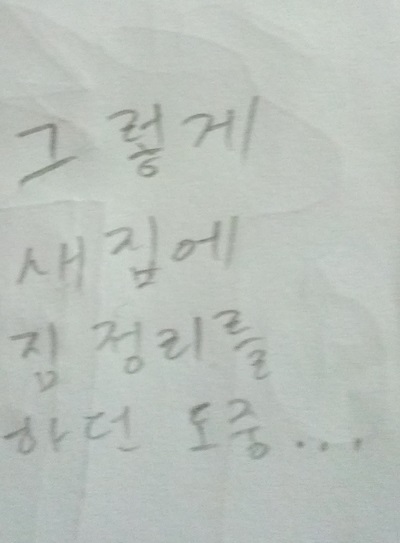 그렇게
새집에
짐 정리를
하던 도중...